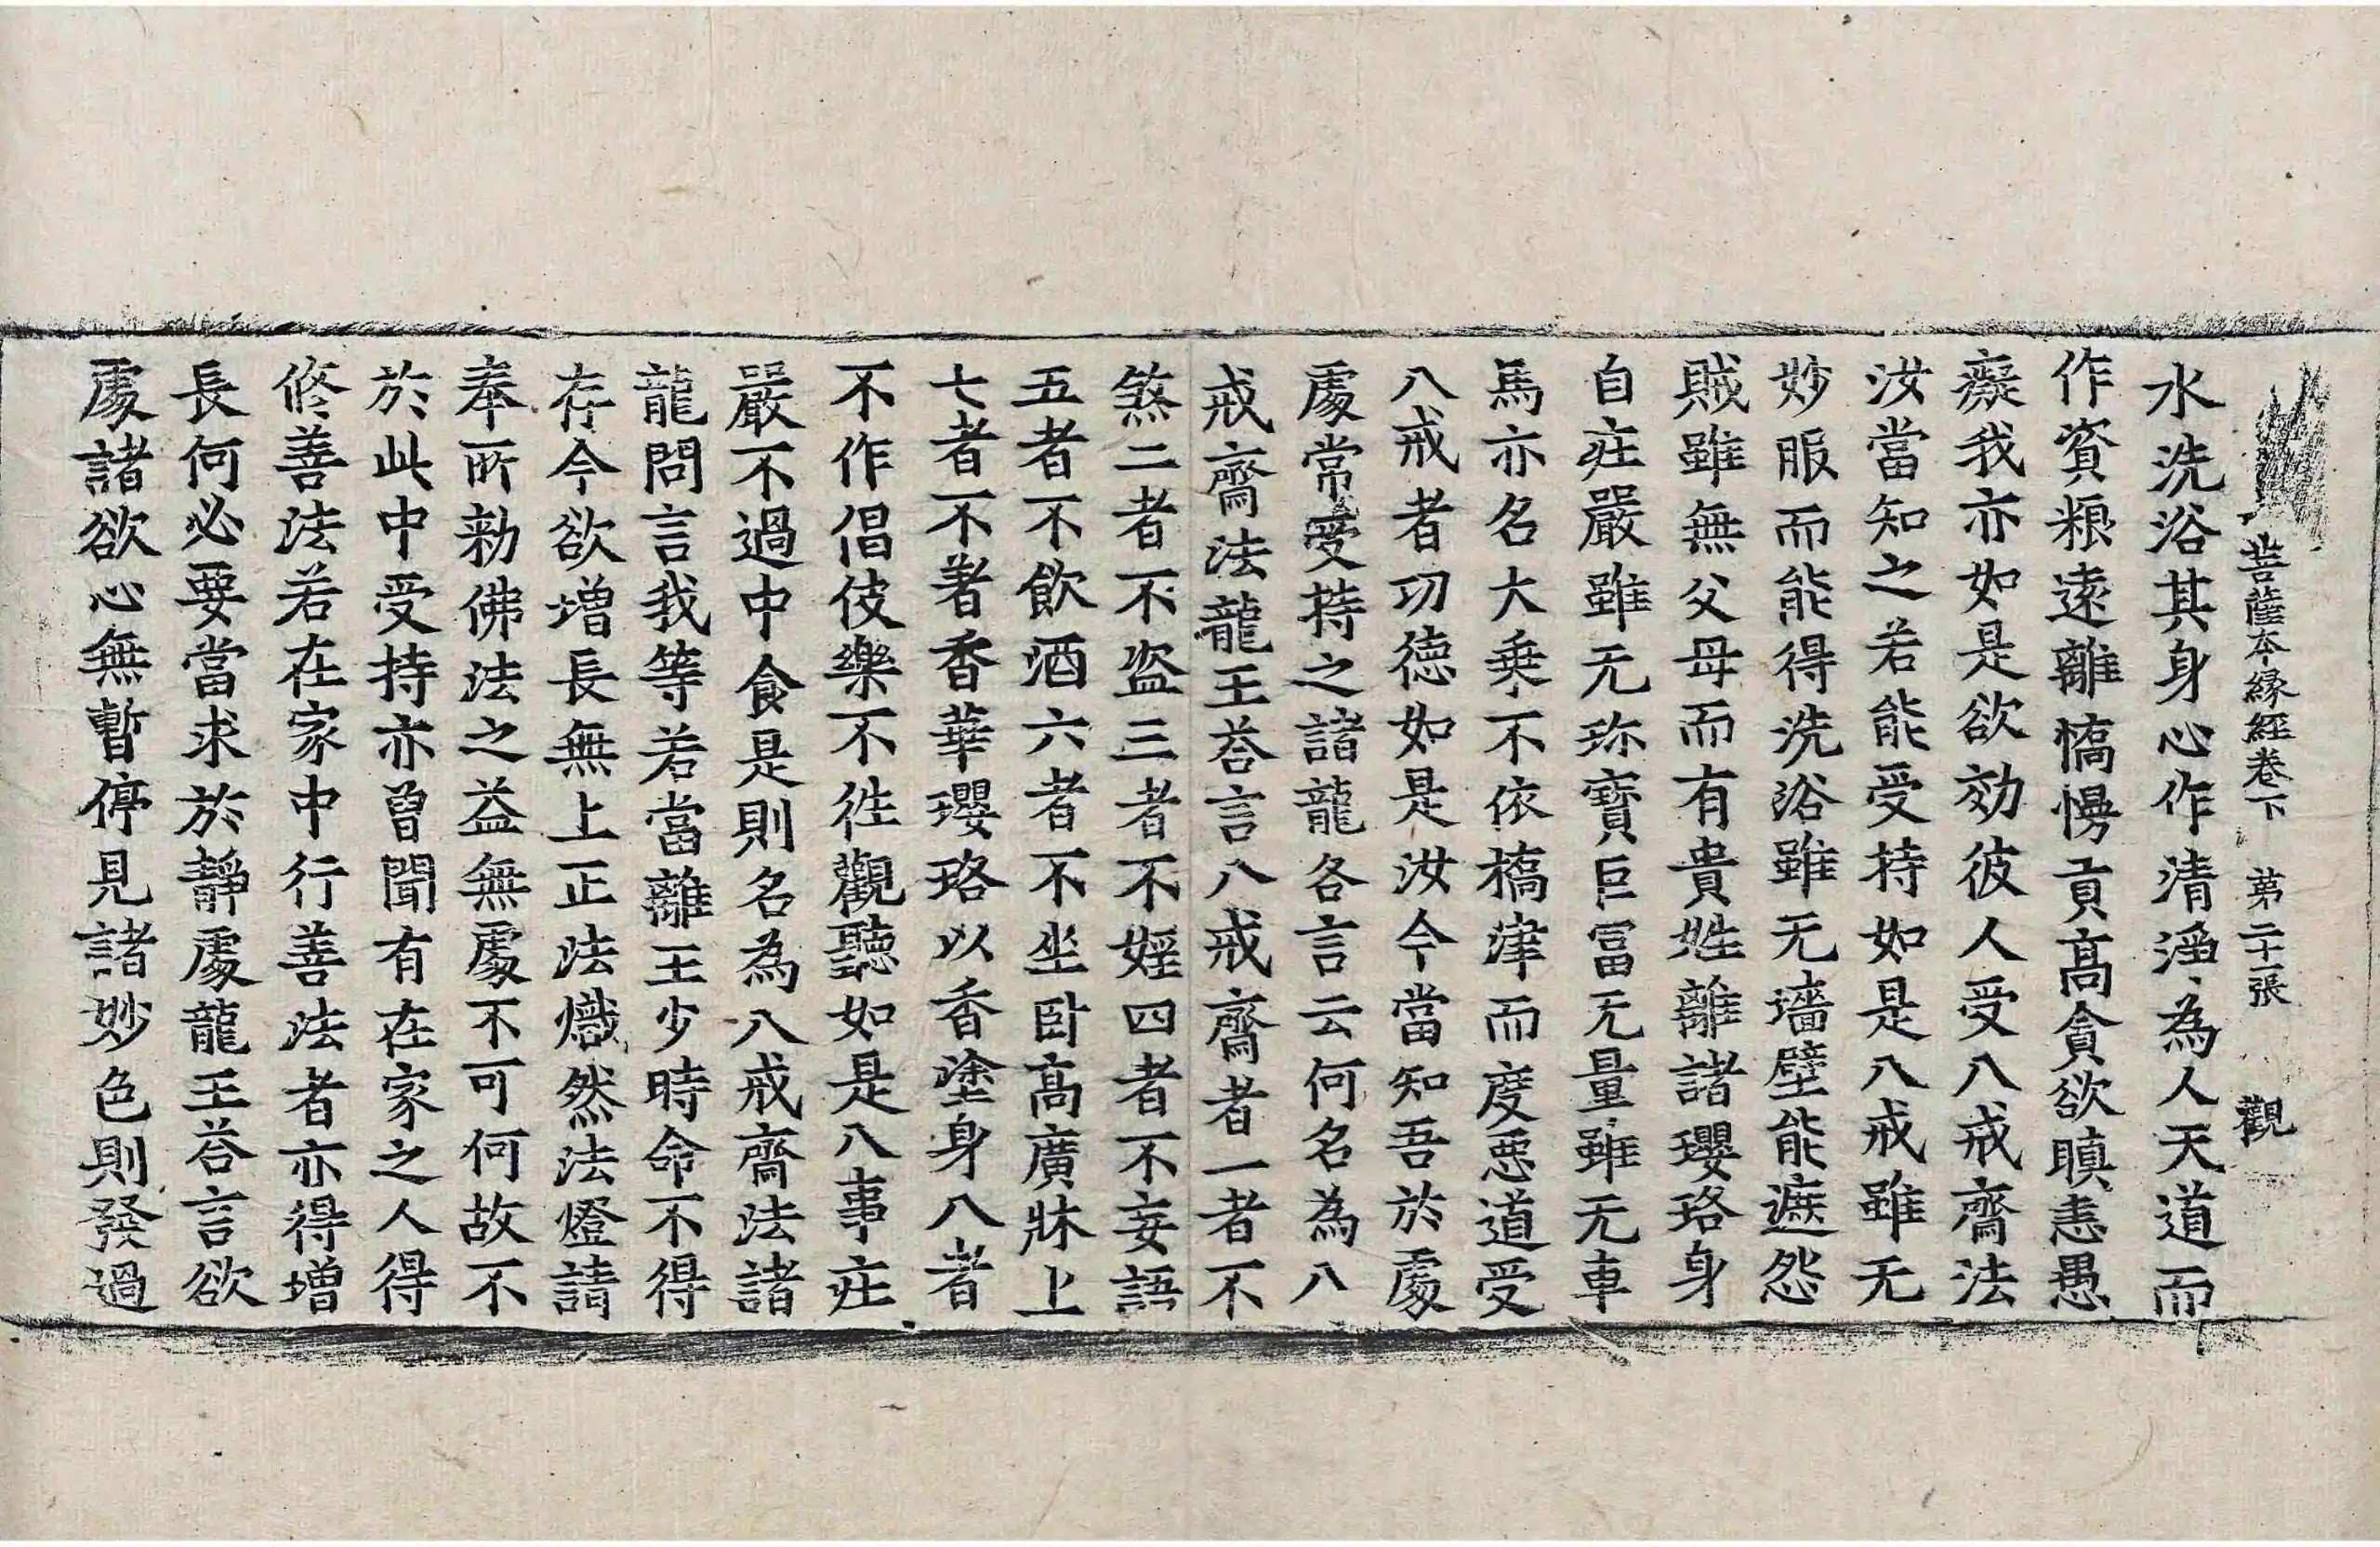 菩薩本縁經卷下 第二十一張 觀
水洗浴其身心作清淨為人天道而
作資粮遠離憍慢貢髙貪欲瞋恚愚
癡我亦如是欲効彼人受八戒齋法
汝當知之若能受持如是八戒雖无
妙服而能得洗浴雖无墻壁能遮怨
賊雖無父母而有貴姓離諸瓔珞身
自庄嚴雖无珎寳巨冨无量雖无車
馬亦名大乗不依橋津而度悪道受
八戒者功德如是汝今當知吾於處
處常受持之諸龍各言云何名為八
戒齋法龍王荅言八戒齋者一者不
煞二者不盗三者不婬四者不妄語
五者不飲酒六者不坐卧髙廣牀上
七者不著香華瓔珞以香塗身八者
不作倡伎樂不徃觀聽如是八事庄
嚴不過中食是則名為八戒齋法諸
龍問言我等若當離王少時命不得
存今欲増長無上正法熾然法燈請
奉所勅佛法之益無處不可何故不
於此中受持亦曽聞有在家之人得
修善法若在家中行善法者亦得増
長何必要當求於靜處龍王荅言欲
處諸欲心無暫停見諸妙色則發過